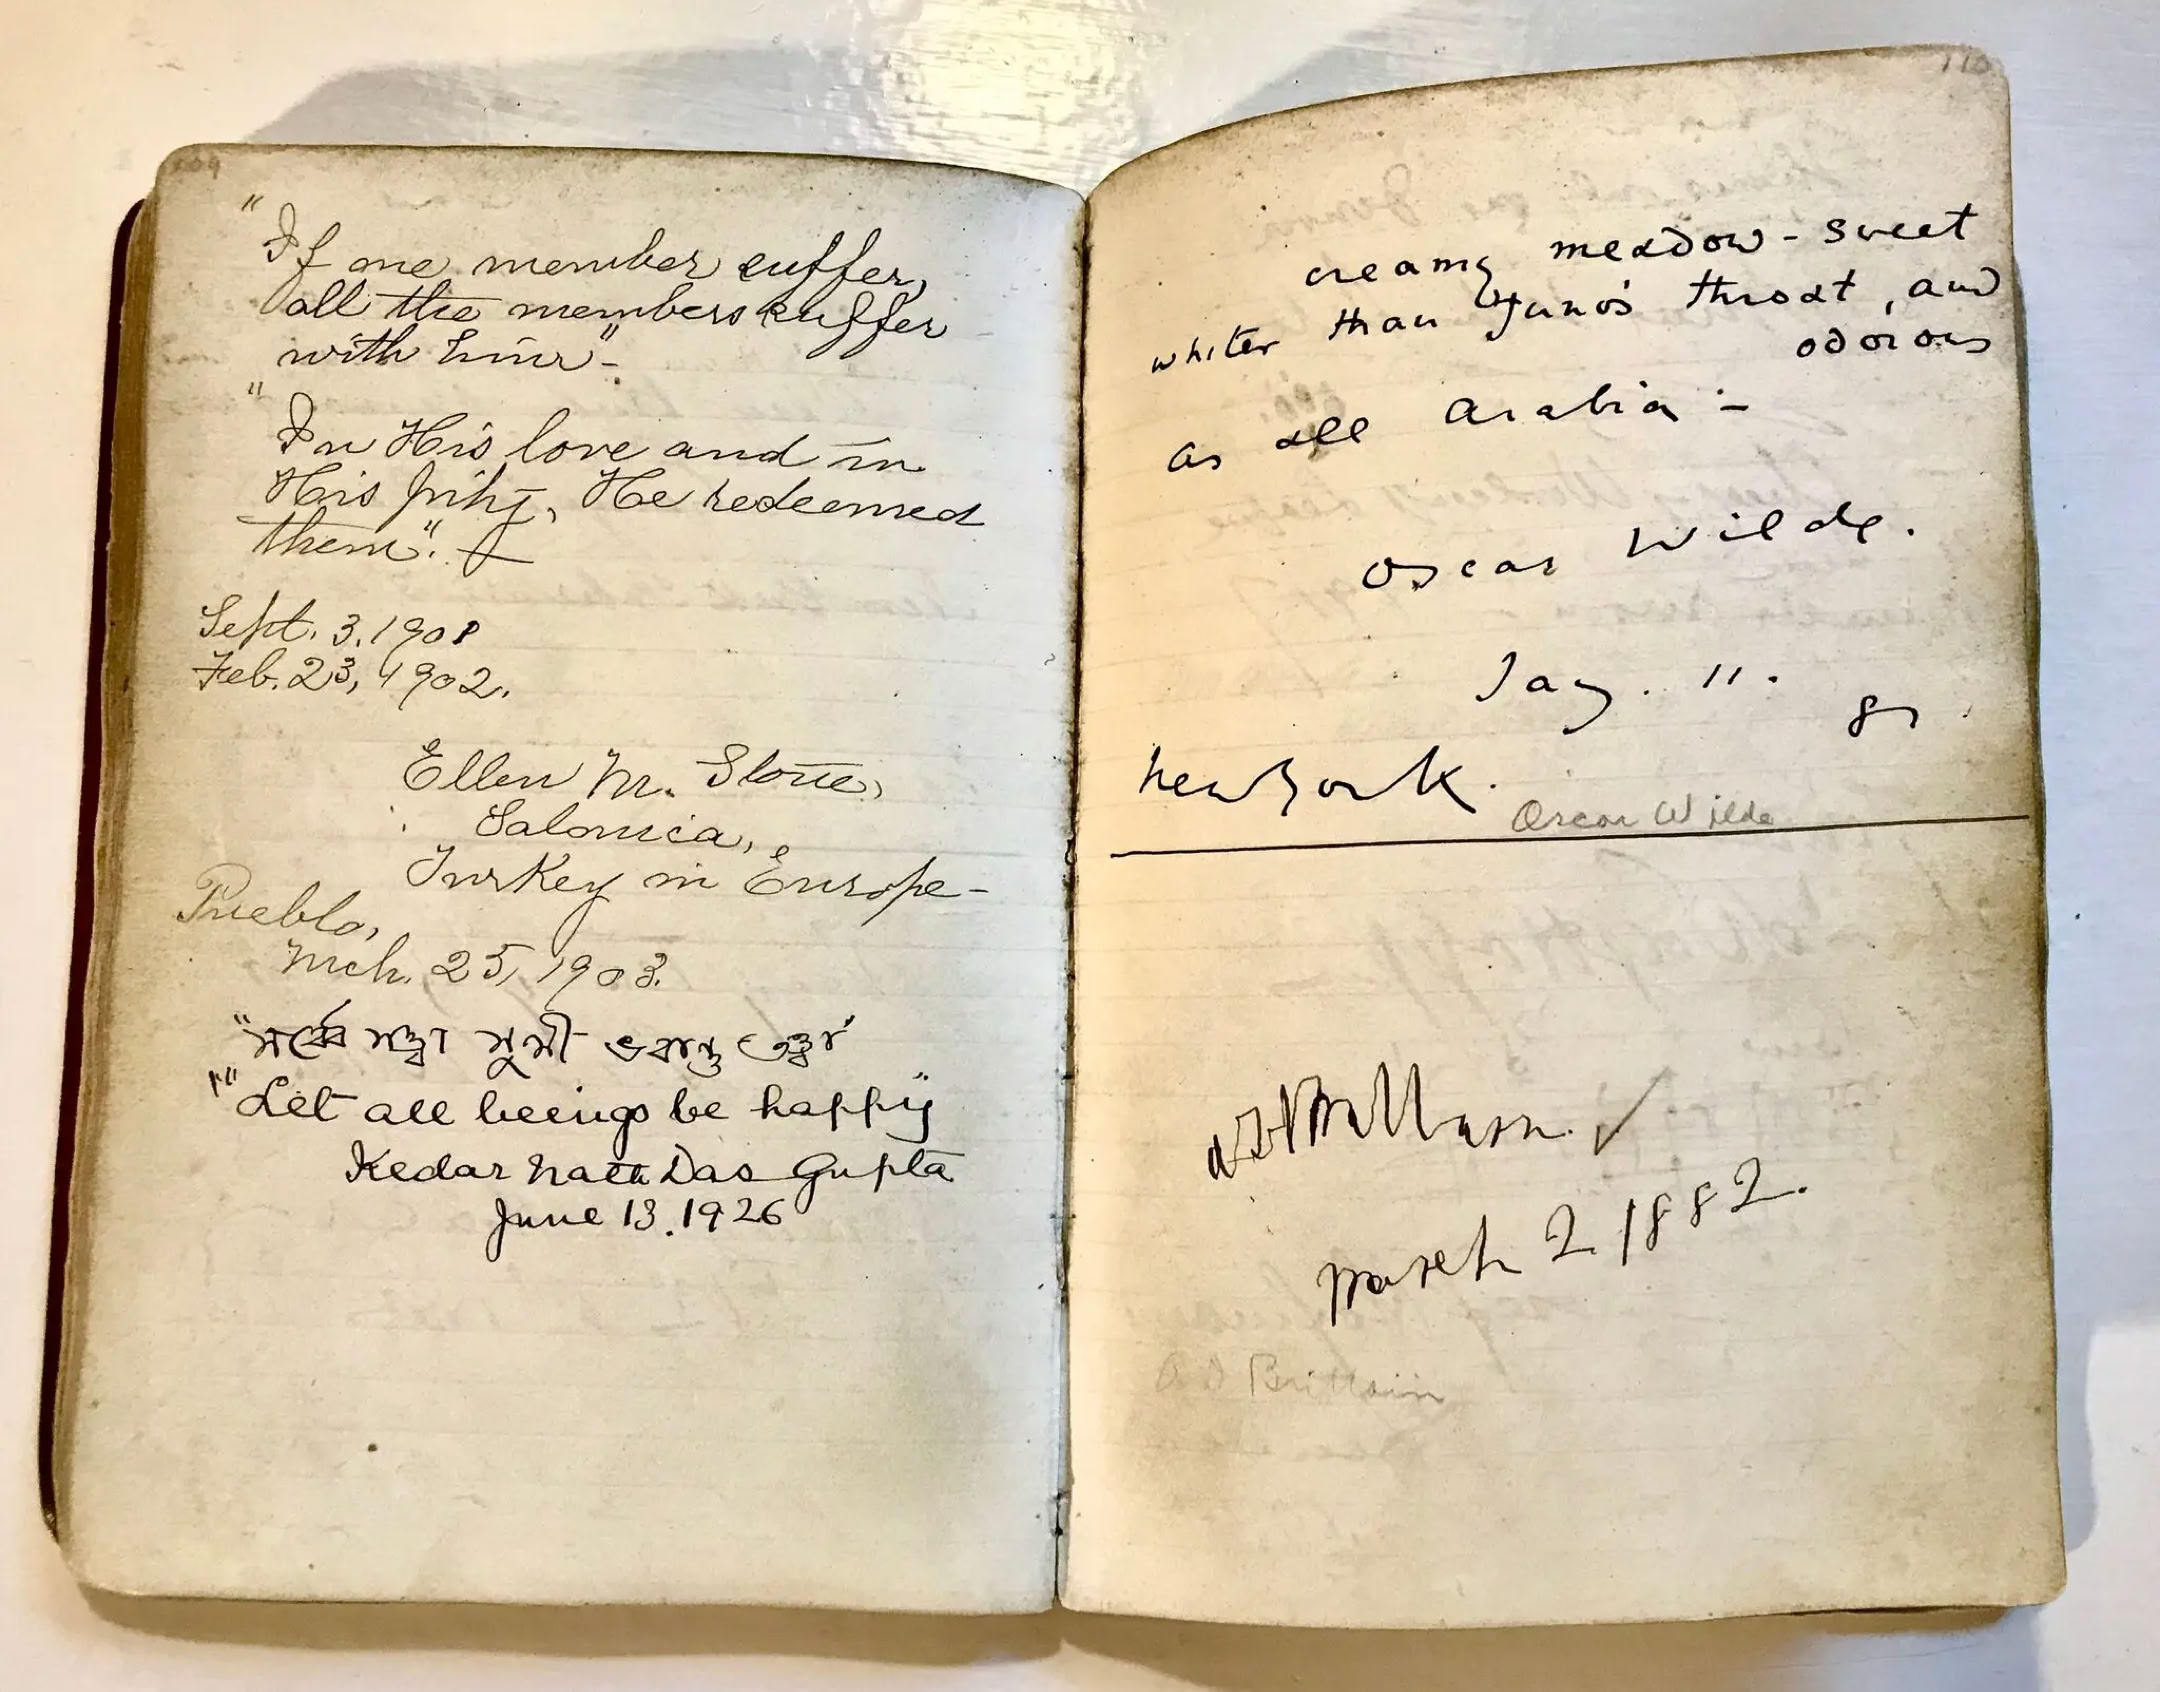 109
"If one member suffer,
all the members suffer
with him"-
"In His love and in
His pity, He redeemed
them". -
Sept. 3. 1901
Feb. 23, 1902.
Ellen M. Stone,
Salonica,
Turkey in Europe-
Pueblo,
Mch. 25, 1903.
"সর্ব্বে সত্ত্বা সুখী ভবন্তু
"Let all beings be happy"
Kedar Nath Das Gupta
June 13. 1926
110
creamy meadow-sweet
whiter than Juno's throat, and
odorous
as all Arabia -
Oscar Wilde.
Jay. 11.
82
New York.
Oscar Wilde
March 2 1882.
Brittain